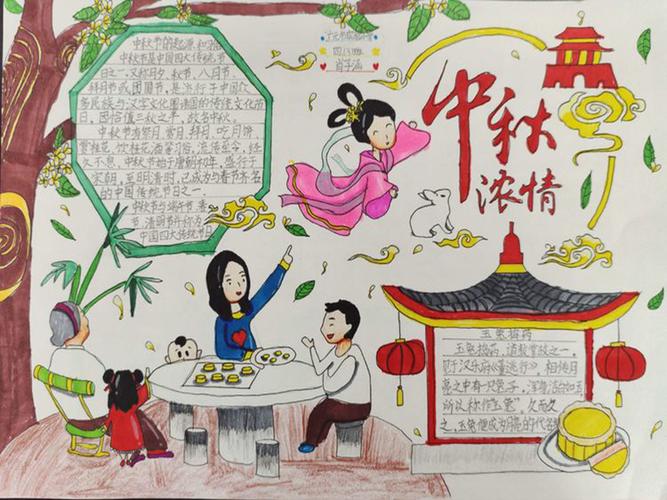 中秋节的起源和习俗
中秋节是中国四大传统节
日之一，又称月夕、秋节、八月节、
拜月节或团圆节，是流行于中国众
多民族与汉字文化圈诸国的传统文化节
日，因恰值三秋之半，故名中秋。
中秋节有祭月、赏月、拜月、吃月饼、
赏桂花、饮桂花酒等习俗，流传至今，经
久不息。中秋节始于唐朝初年，盛行于
宋朝，至明清时，已成为与春节齐名
的中国传统节日之一。
中秋节与端午节、春
节、清明节并称为
中国四大传统节日
肖子涵
中秋
浓情
玉兔捣药
玉兔捣药，道教掌故之一，
见于汉乐府《董逃行》。相传月
亮之中有一只兔子，浑身洁白如玉，
所以称作"玉兔"。久而久
之，玉兔便成为月亮的代名词